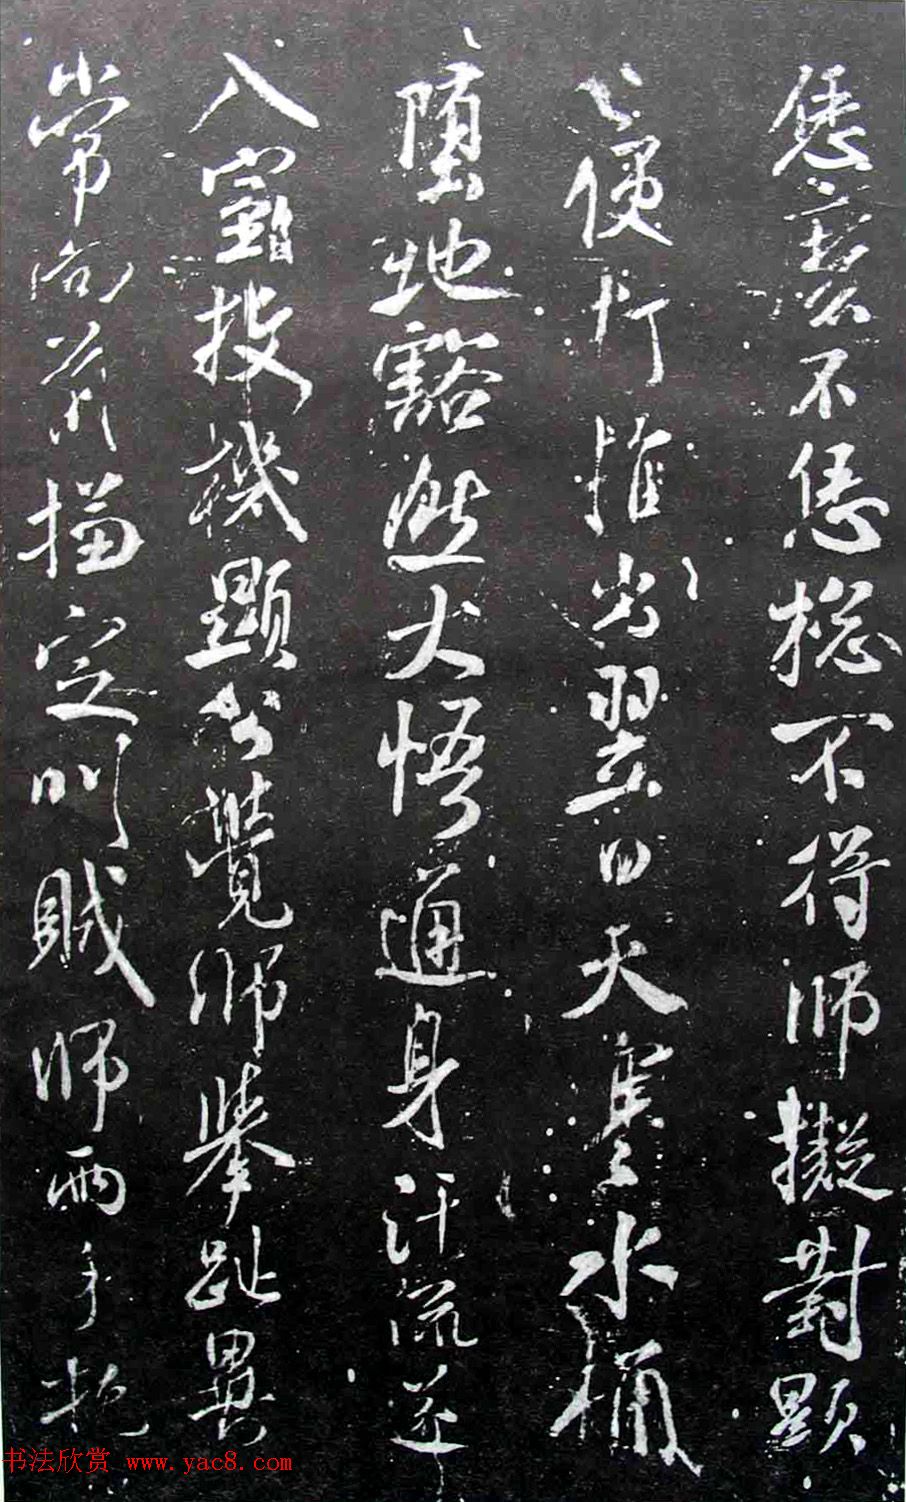 恁麼不恁總不得師擬對顯
公便打推出翌日天寒水桶
墮地豁然大悟通身汗流遂
入室投機顯公覺師舉趾異
常向前搊定叫賊師兩手托
书法欣赏 www.yac8.com